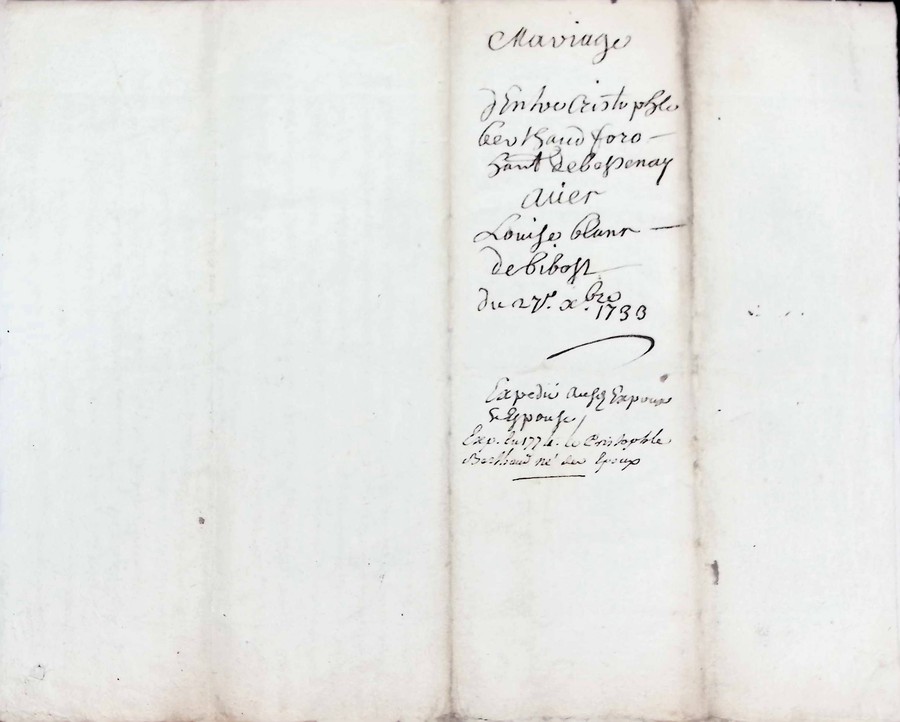 Mariage
d'Entre Cristophle
berthaud foro-
hant de bessenay
avec
Louise blanc
de bibost
du 27e. xbre 1733
Expedié ausd Expoux
& Espouse
Exp. en 1774. le Cristophle
Berthaud né des Epoux